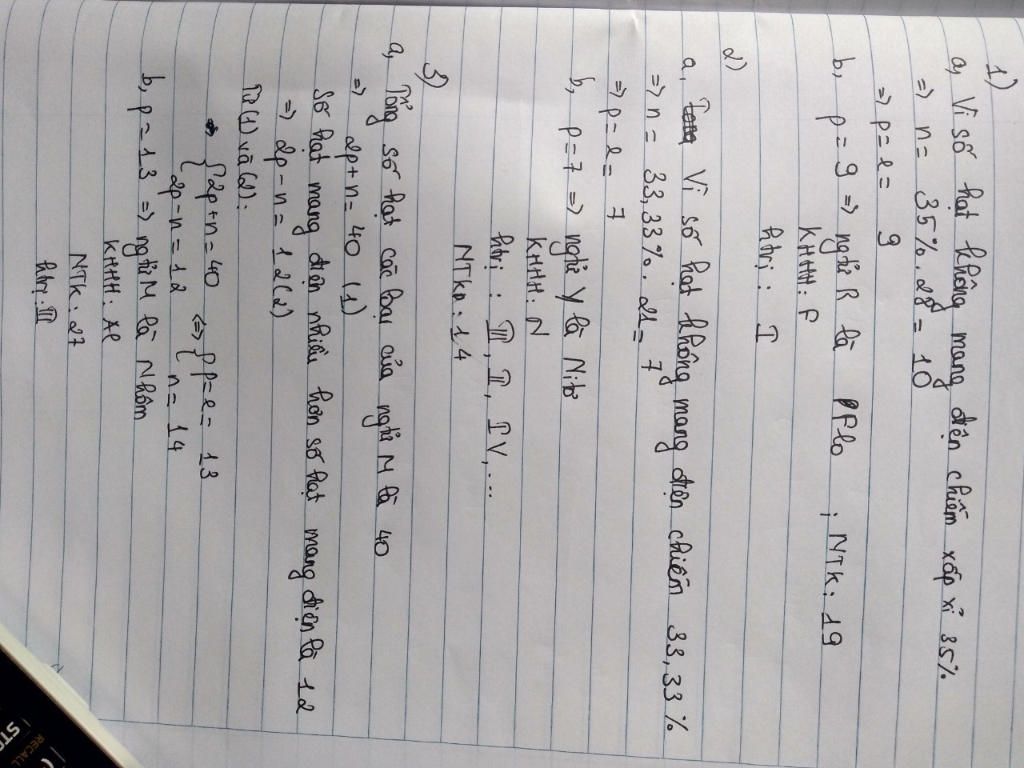 1)
a, Vì số hạt không mang điện chiếm xấp xỉ 35%
=> n = 35%.28 = 10
=> p = e = 9
b, p = 9 => ngtử R là Flo ; NTK: 19
KHHH: F
htrị : I
2)
a, Vì số hạt không mang điện chiếm 33,33%
=> n = 33,33%. 21 = 7
=> p = e = 7
b, p = 7 => ngtử Y là Nitơ
KHHH: N
htrị : III, I, IV,...
NTK: 14
3)
a, Tổng số hạt các loại của ngtử M là 40
=> 2p + n = 40 (1)
Số hạt mang điện nhiều hơn số hạt mang điện là 12
=> 2p - n = 12 (2)
Từ (1) và (2):
=> { 2p + n = 40 <=> { p = e = 13
2p - n = 12 n = 14
b, p = 13 => ngtử M là Nhôm
KHHH: Al
NTK: 27
htrị: III
RECALL